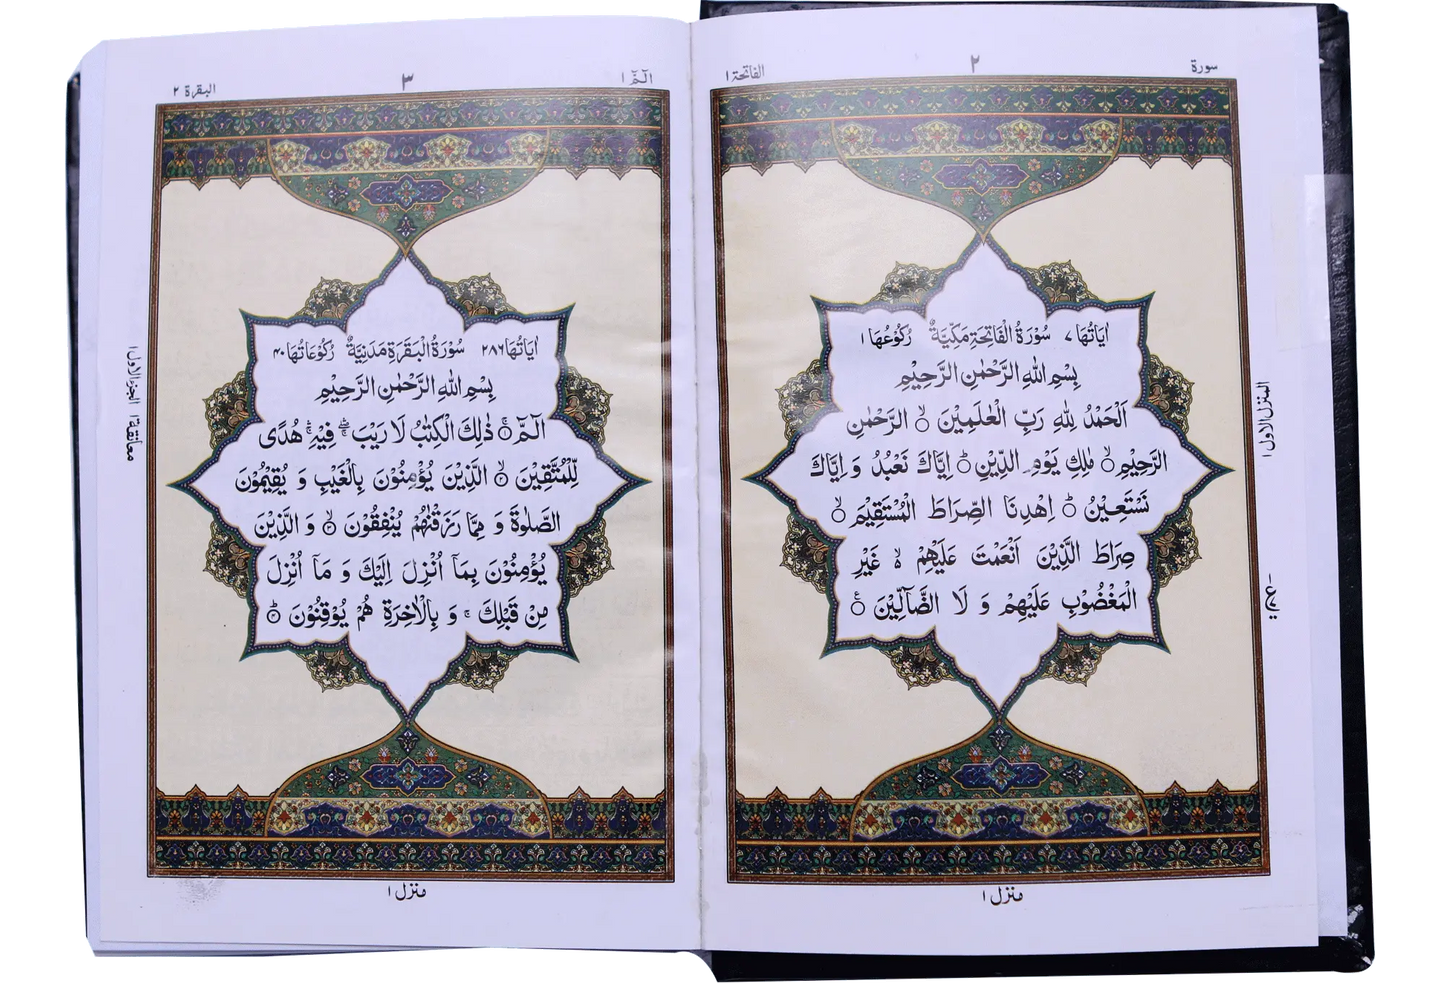 سورة
٢
الفاتحة ١
اٰيَاتُهَا ٧ سُوْرَةُ الْفَاتِحَةِ مَكِّيَّةٌ رُكُوْعُهَا ١
بِسْمِ اللهِ الرَّحْمٰنِ الرَّحِيْمِ
اَلْحَمْدُ لِلّٰهِ رَبِّ الْعٰلَمِيْنَ ۙ الرَّحْمٰنِ
الرَّحِيْمِ ۙ مٰلِكِ يَوْمِ الدِّيْنِ ؕ اِيَّاكَ نَعْبُدُ وَ اِيَّاكَ
نَسْتَعِيْنُ ؕ اِهْدِنَا الصِّرَاطَ الْمُسْتَقِيْمَ ۙ
صِرَاطَ الَّذِيْنَ اَنْعَمْتَ عَلَيْهِمْ ۙ غَيْرِ
الْمَغْضُوْبِ عَلَيْهِمْ وَ لَا الضَّآلِّيْنَ
المنزل الاول ١
منزل ١
الٓمّٓ ١
٣
البقرة ٢
اٰيَاتُهَا ٢٨٦ سُوْرَةُ الْبَقَرَةِ مَدَنِيَّةٌ رُكُوْعَاتُهَا ٤٠
بِسْمِ اللهِ الرَّحْمٰنِ الرَّحِيْمِ
الٓمّٓ ۚ ذٰلِكَ الْكِتٰبُ لَا رَيْبَ ۛۖ فِيْهِ ۛۚ هُدًى
لِّلْمُتَّقِيْنَ ۙ الَّذِيْنَ يُؤْمِنُوْنَ بِالْغَيْبِ وَ يُقِيْمُوْنَ
الصَّلٰوةَ وَ مِمَّا رَزَقْنٰهُمْ يُنْفِقُوْنَ ۙ وَ الَّذِيْنَ
يُؤْمِنُوْنَ بِمَآ اُنْزِلَ اِلَيْكَ وَ مَآ اُنْزِلَ
مِنْ قَبْلِكَ ۚ وَ بِالْاٰخِرَةِ هُمْ يُوْقِنُوْنَ ؕ
معانقة ١ الجزء الاول ١
منزل ١